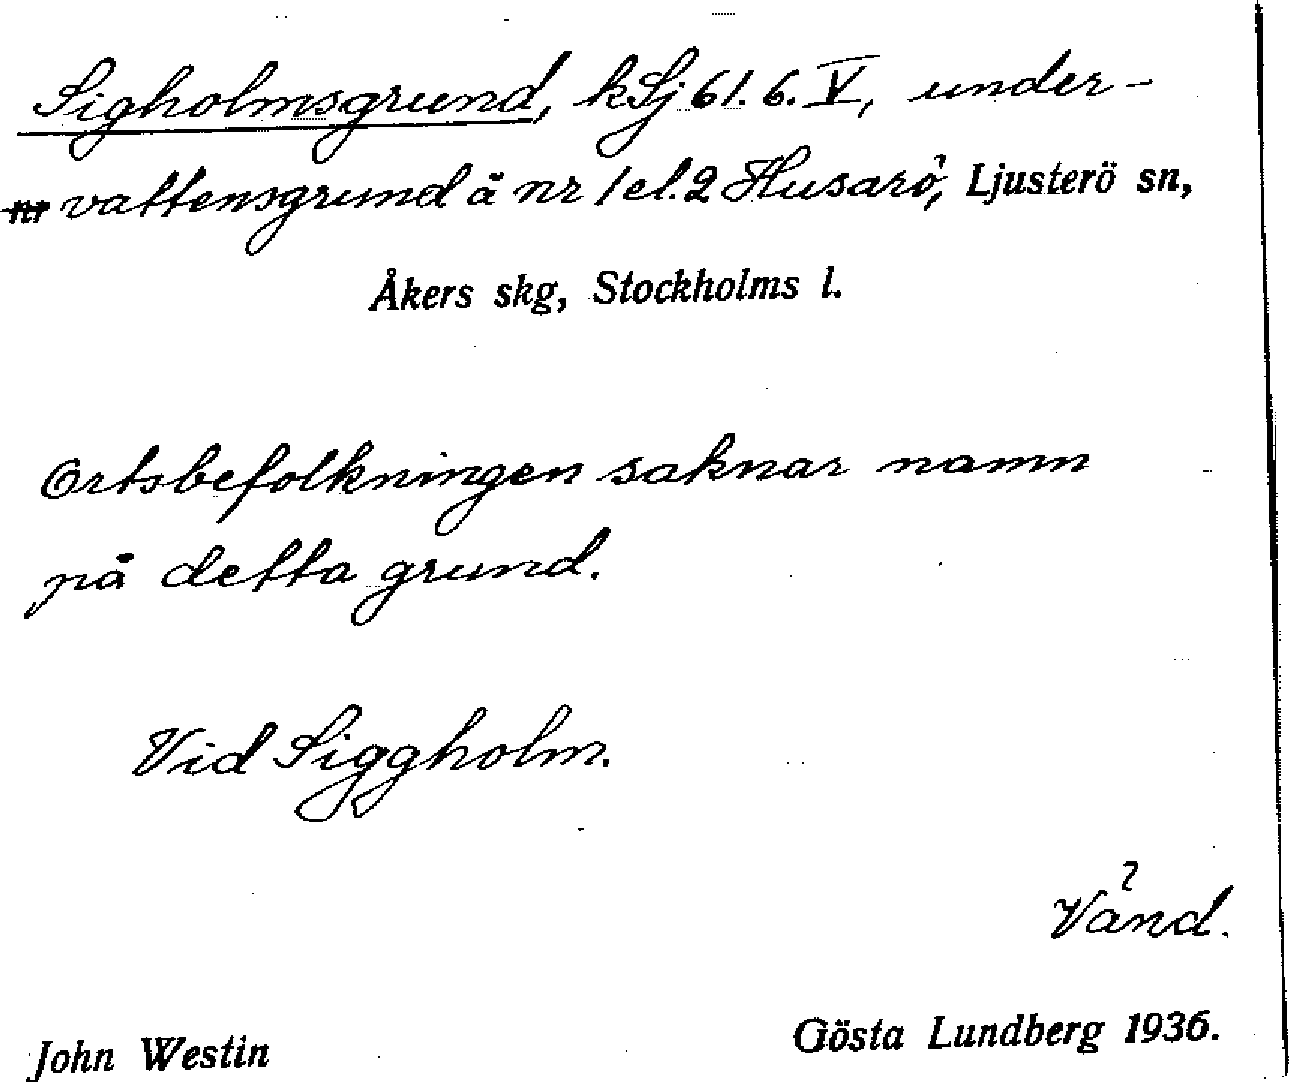 Sigholmsgrund, kSj 61. 6. V, under-
nr vattensgrund å nr 1 el. 2 Husarö, Ljusterö sn,
Åkers skg, Stockholms l.
Ortsbefolkningen saknar namn
på detta grund.
Vid Siggholm.
Vänd.
John Westin Gösta Lundberg 1936.